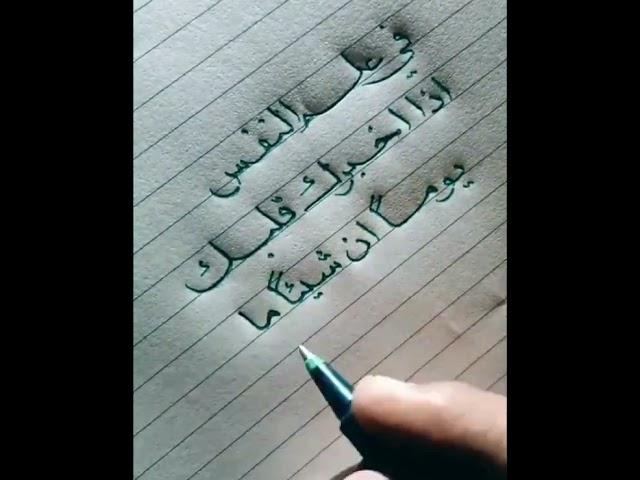 في علم النفس
اذا اخبرك قلبك
يوماً ان شيئاً ما